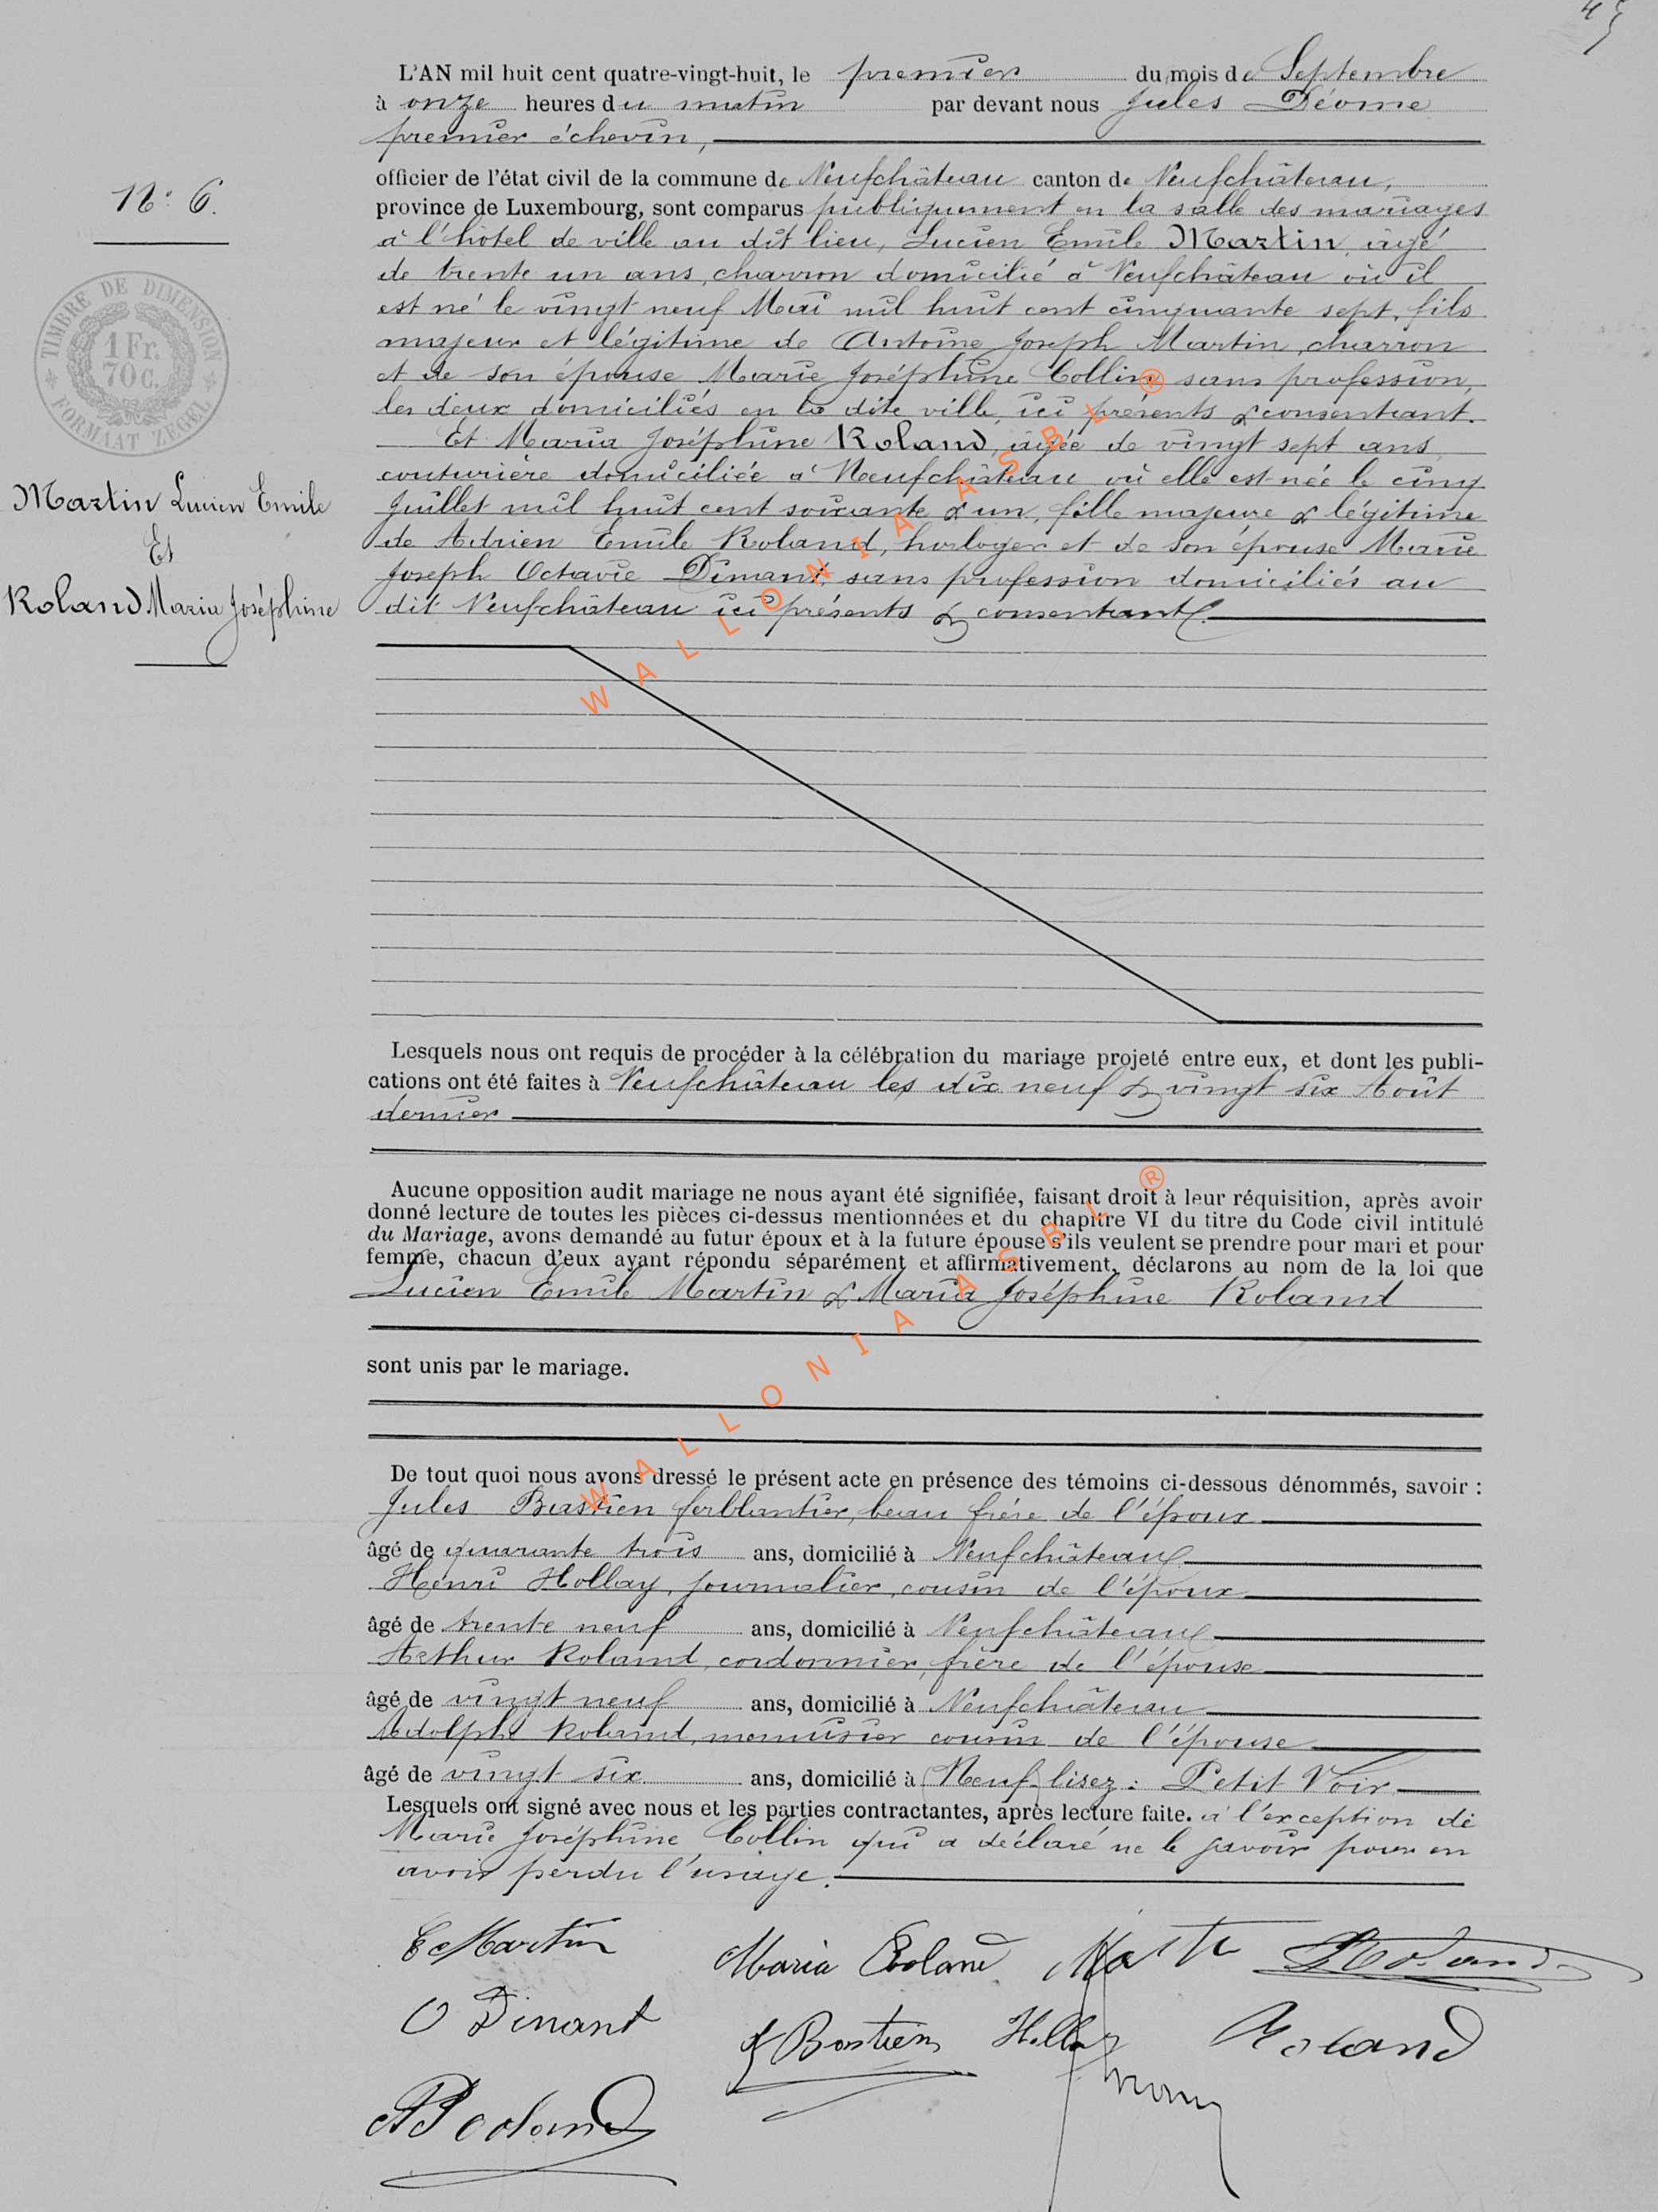 L'AN mil huit cent quatre-vingt-huit, le premier du mois de Septembre
à onze heures du matin par devant nous Jules Déome
premier échevin,
officier de l'état civil de la commune de Neufchâteau canton de Neufchâteau,
province de Luxembourg, sont comparus publiquement en la salle des mariages
à l'hôtel de ville au dit lieu, Lucien Emile Martin, âgé
de trente un ans, charron domicilié à Neufchâteau où il
est né le vingt neuf Mai mil huit cent cinquante sept, fils
majeur et légitime de Antoine Joseph Martin, charron
et de son épouse Marie Joséphine Collin, sans profession,
les deux domiciliés en la dite ville, ici présents & consentant.
Et Maria Joséphine Roland, âgée de vingt sept ans,
couturière domiciliée à Neufchâteau où elle est née le cinq
Juillet mil huit cent soixante & un, fille majeure & légitime
de Adrien Emile Roland, horloger et de son épouse Marie
Joseph Octavie Dinant, sans profession domiciliés au
dit Neufchâteau ici présents & consentant.
N° 6.
TIMBRE DE DIMENSION
1 Fr.
70 C.
FORMAAT ZEGEL
Martin Lucien Emile
Et
Roland Maria Joséphine
Lesquels nous ont requis de procéder à la célébration du mariage projeté entre eux, et dont les publi-
cations ont été faites à Neufchâteau les dix neuf & vingt six Août
dernier
Aucune opposition audit mariage ne nous ayant été signifiée, faisant droit à leur réquisition, après avoir
donné lecture de toutes les pièces ci-dessus mentionnées et du chapitre VI du titre du Code civil intitulé
du Mariage, avons demandé au futur époux et à la future épouse s'ils veulent se prendre pour mari et pour
femme, chacun d'eux ayant répondu séparément et affirmativement, déclarons au nom de la loi que
Lucien Emile Martin & Maria Joséphine Roland
sont unis par le mariage.
De tout quoi nous avons dressé le présent acte en présence des témoins ci-dessous dénommés, savoir :
Jules Bastien ferblantier, beau frère de l'époux
âgé de quarante trois ans, domicilié à Neufchâteau
Henri Hollay, journalier, cousin de l'époux
âgé de trente neuf ans, domicilié à Neufchâteau
Arthur Roland, cordonnier, frère de l'épouse
âgé de vingt neuf ans, domicilié à Neufchâteau
Adolphe Roland, menuisier cousin de l'épouse
âgé de vingt six ans, domicilié à (Neuf) lisez : Petit Voir
Lesquels ont signé avec nous et les parties contractantes, après lecture faite. à l'exception de
Marie Joséphine Collin qui a déclaré ne le savoir pour en
avoir perdu l'usage.
E Martin Maria Roland Roland
O Dinant J Bastien Hollay Roland
A Roland
WALLONIA ASBL ®
WALLONIA ASBL ®